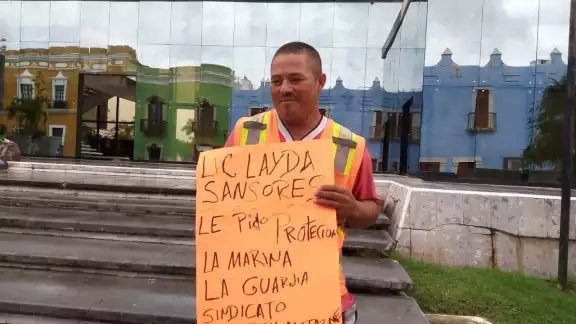 LIC LAYDA
SANSORES
LE PIDO PROTECCION
LA MARINA
LA GUARDIA
SINDICATO